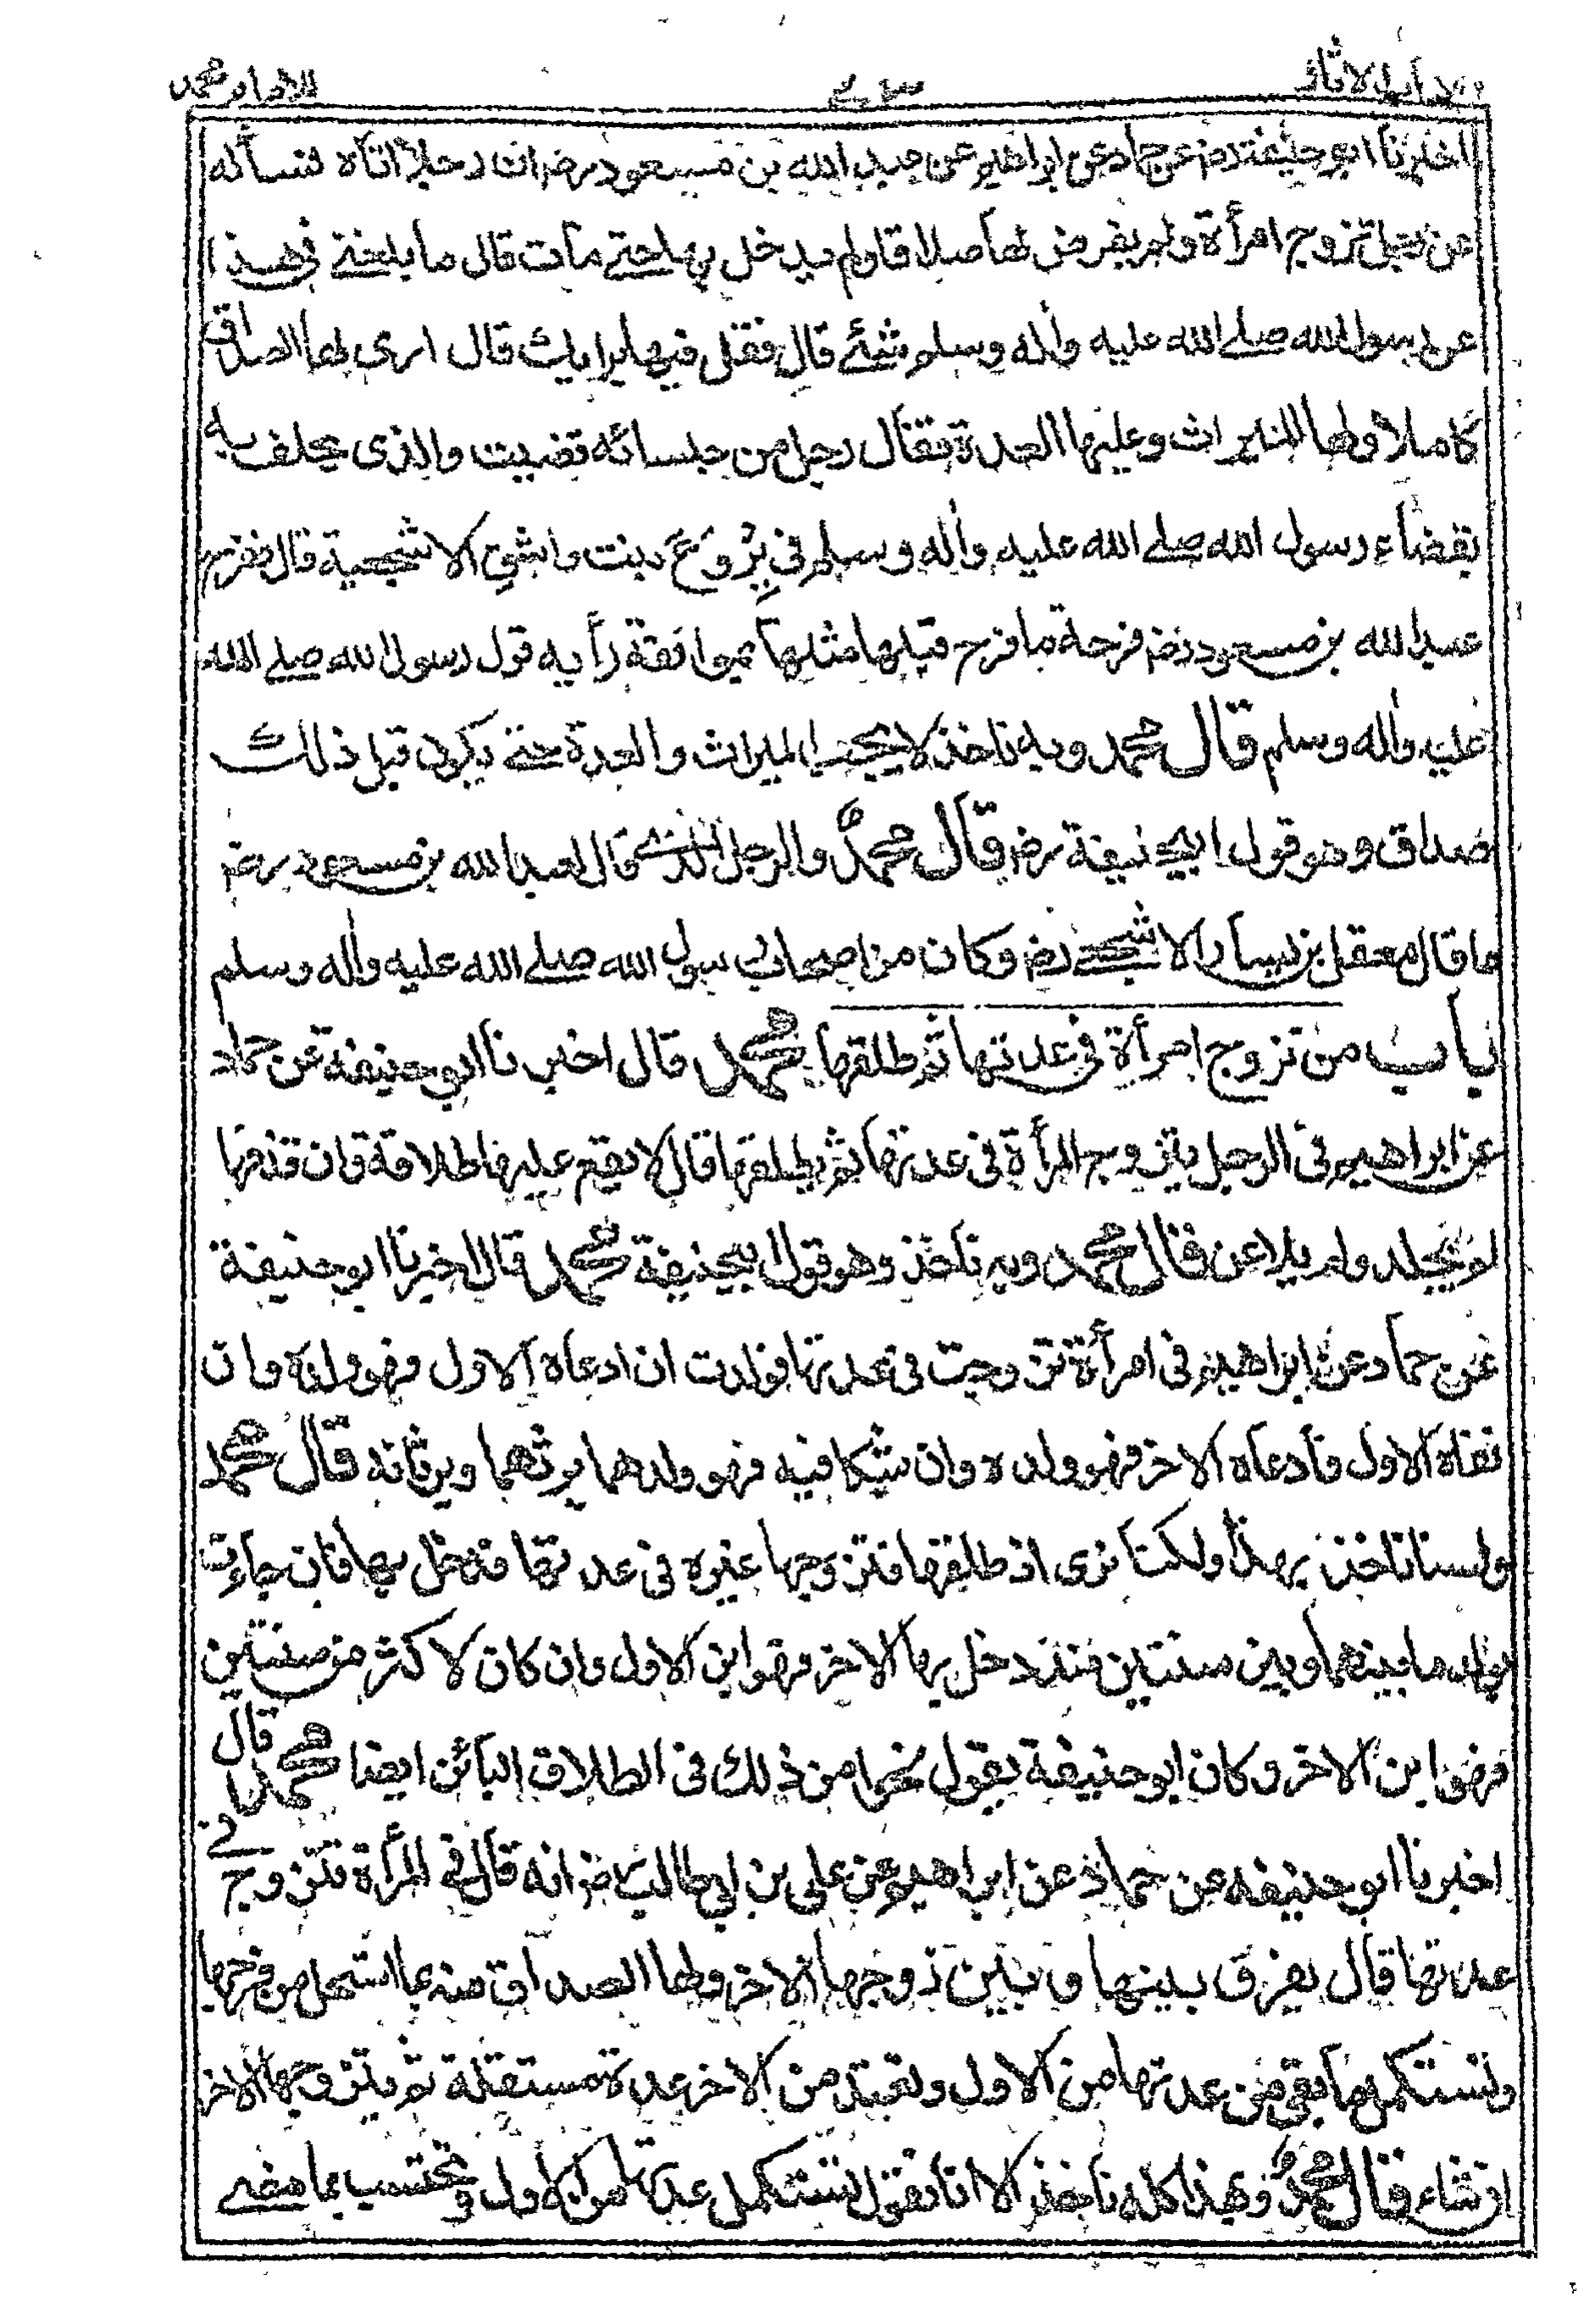 كتاب الاثار للامام محمد
اخبرنا ابو حنيفة رض عن حماد عن ابراهيم عن عبد الله بن مسعود رض ان رجلا اتاه فسأله
عن رجل تزوج امرأة ولم يفرض لها صداقا ولم يدخل بها حتے مات قال ما بلغنے فی هذا
عن رسول الله صلے الله عليه واله وسلم شئے قال فقل فيها برايك قال ارى لها الصداق
كاملا ولها الميراث وعليها العدة فقال رجل من جلسائه قضيت والذى يحلف به
بقضاء رسول الله صلے الله عليه واله وسلم فی بِرْوَعَ بنت واشق الاشجعية قال ففرح
عبد الله بن مسعود رض فرحة ما فرح قبلها مثلها بموافقة رأيه قول رسول الله صلے الله
عليه واله وسلم قال محمد وبه ناخذ لا يجب الميراث والعدة حتے يكون قبل ذلك
صداق وهو قول ابيحنيفة رض قال محمد والرجل الذے قال لعبد الله بن مسعود رض
ما قال معقل بن يسار الاشجعے رض وكان من اصحاب رسول الله صلے الله عليه واله وسلم
باب من تزوج امرأة فی عدتها ثم طلقها محمد قال اخبرنا ابو حنيفة عن حماد
عن ابراهيم فی الرجل يتزوج المرأة فی عدتها ثم يطلقها قال لا يقع عليها طلاقه وان قذفها
لم يجلد ولم يلاعن قال محمد وبه ناخذ وهو قول ابيحنيفة محمد قال اخبرنا ابو حنيفة
عن حماد عن ابراهيم فی امرأة تزوجت فی عدتها فولدت ان ادعاه الاول فهو ولده وان
نفاه الاول فادعاه الاخر فهو ولده وان شكا فيه فهو ولدهما يرثهما ويرثانه قال محمد
ولسنا ناخذ بهذا ولكنا نرى اذ طلقها فتزوجها غيره فی عدتها فدخل بها فان جاءت
بولد ما بينهما وبين سنتين منذ دخل بها الاخر فهو ابن الاول وان كان لاكثر من سنتين
فهو ابن الاخر وكان ابو حنيفة يقول نحوا من ذلك فی الطلاق البائن ايضا محمد قال
اخبرنا ابو حنيفة عن حماد عن ابراهيم عن علی بن ابی طالب رض انه قال فی المرأة تتزوج فے
عدتها قال يفرق بينها وبين زوجها الاخر ولها الصداق منه بما استحل من فرجها
وتستكمل ما بقی من عدتها من الاول وتعتد من الاخر عدة مستقبلة ثم يتزوجها الاخر
ان شاء قال محمد وبهذا كله ناخذ الا انا نقول تستكمل عدتها من الاول وتحتسب بما مضے